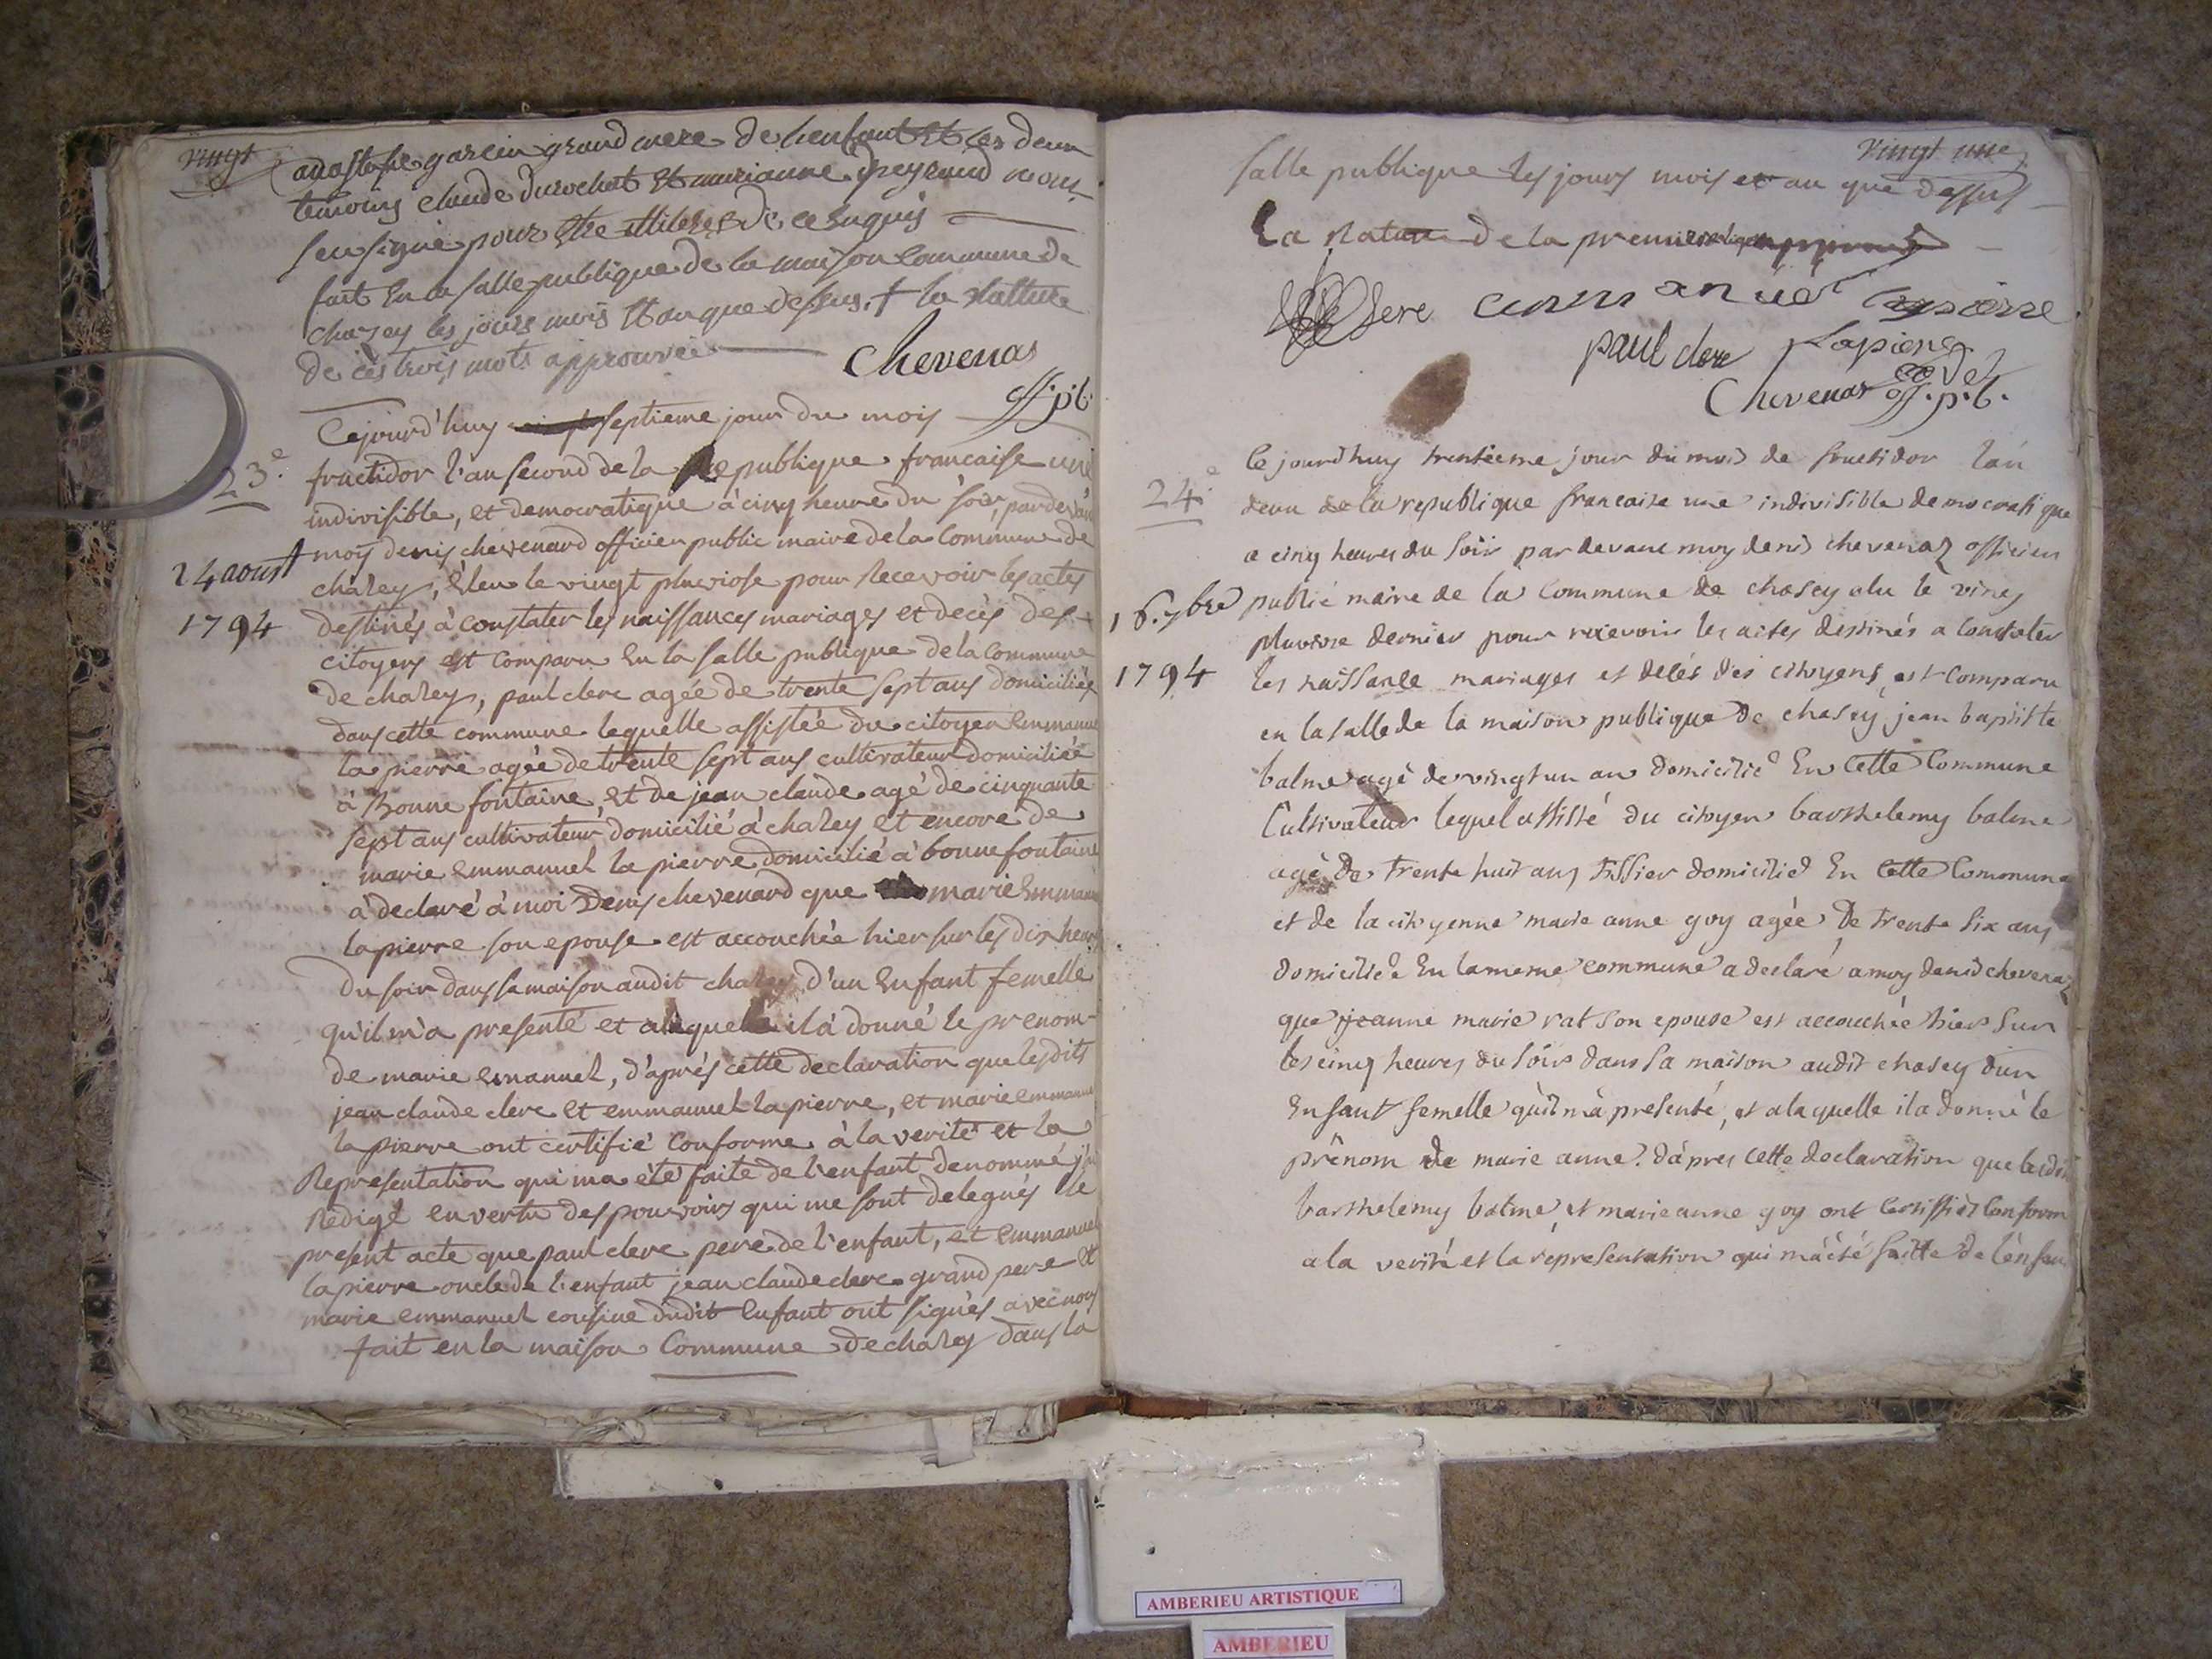 vingt
anastase garcin grand mere de lenfant Et les deux
temoins claude durochat Et marianne peyraud nont
seu signé pour Etre illiteres de ce Enquis
fait En la salle publique de la maison Commune de
chazey les jours mois Et an que dessus. + la rature
de ces trois mots approuvée
Chevenas
off. pb.
Cejourd'huy septieme jour du mois
23e.
fructidor l'an second de la Republique francaise une
indivisible, et democratique à cinq heure du soir, pardevan
moy denis chevenard officier public maire de la Commune de
24 aoust
1794
chazey, Eleu le vingt pluviose pour Recevoir les actes
destinés à constater les naissances mariages et decès des
citoyens est comparu En la salle publique de la Commune
de chazey, paul clerc agée de trente sept ans domiciliée
dans cette commune lequelle assistée du citoyen Emmanuel
la pierre agée de trente sept ans cultivateur domiciliée
à Bonne fontaine, et de jean claude agé de cinquante
sept ans cultivateur domicilié à chazey et encore de
marie emmanuel la pierre domicilié à bonne fontaine
à declaré à moi Denis chevenard que marie Emmanu
lapierre son epouse est accouchée hier sur les dix heures
du soir dans sa maison audit chazey d'un Enfant femelle
qu'il m'a presenté et a laquelle il à donné le prenom
de marie emanuel, d'aprés cette declaration que lesdits
jean claude clerc et emmanuel lapierre, et marie emmanuel
la pierre ont certifié conforme à la verité et la
Representation qui ma été faite de l'enfant denommé j'ai
Redigé en vertu des pouvoirs qui me sont delegués le
present acte que paul clerc pere de l'enfant, et Emmanuel
lapierre oncle de l'enfant jean claude clerc grand pere Et
marie emmanuel cousine dudit Enfant ont signés avec nous
fait en la maison Commune de chazey dans la
vingt une
salle publique les jours mois et an que dessus
La rature de la premiere ligne approuvé
clere emmanuel lapierre
paul clere Lapierre
Chevenas off. p. b.
24e
Ce jourd'huy trentieme jour du mois de fructidor lan
deux de la republique francaise une indivisible democratique
a cinq heures du soir par devant moy denis chevenaz officier
16. 7bre
1794
public maire de la Commune de chasey elu le vingt
pluviose dernier pour recevoir les actes destinés a Constater
les naissance mariages et decés des citoyens, est Comparu
en la salle de la maison publique de chasey jean baptiste
balme agé de vingt un ans domicilié En Cette Commune
Cultivateur lequel assisté du citoyen barthelemy balme
agé de trente huit ans tissier domicilié En Cette Commune
et de la citoyenne marie anne goy agée De trente six ans
domiciliée En la meme commune a declaré a moy denis chevenaz
que jeanne marie rat son epouse est accouchée hier sur
les cinq heures du soir dans sa maison audit chasey dun
Enfant femelle qu'il m'a presenté, et a laquelle il a donné le
prénom de marie anne. d'apres Cette declaration que lesdits
barthelemy balme, et marie anne goy ont Certiffiés Conform
a la verité et la représentation qui m'a été faitte de l'enfan
AMBERIEU ARTISTIQUE
AMBERIEU